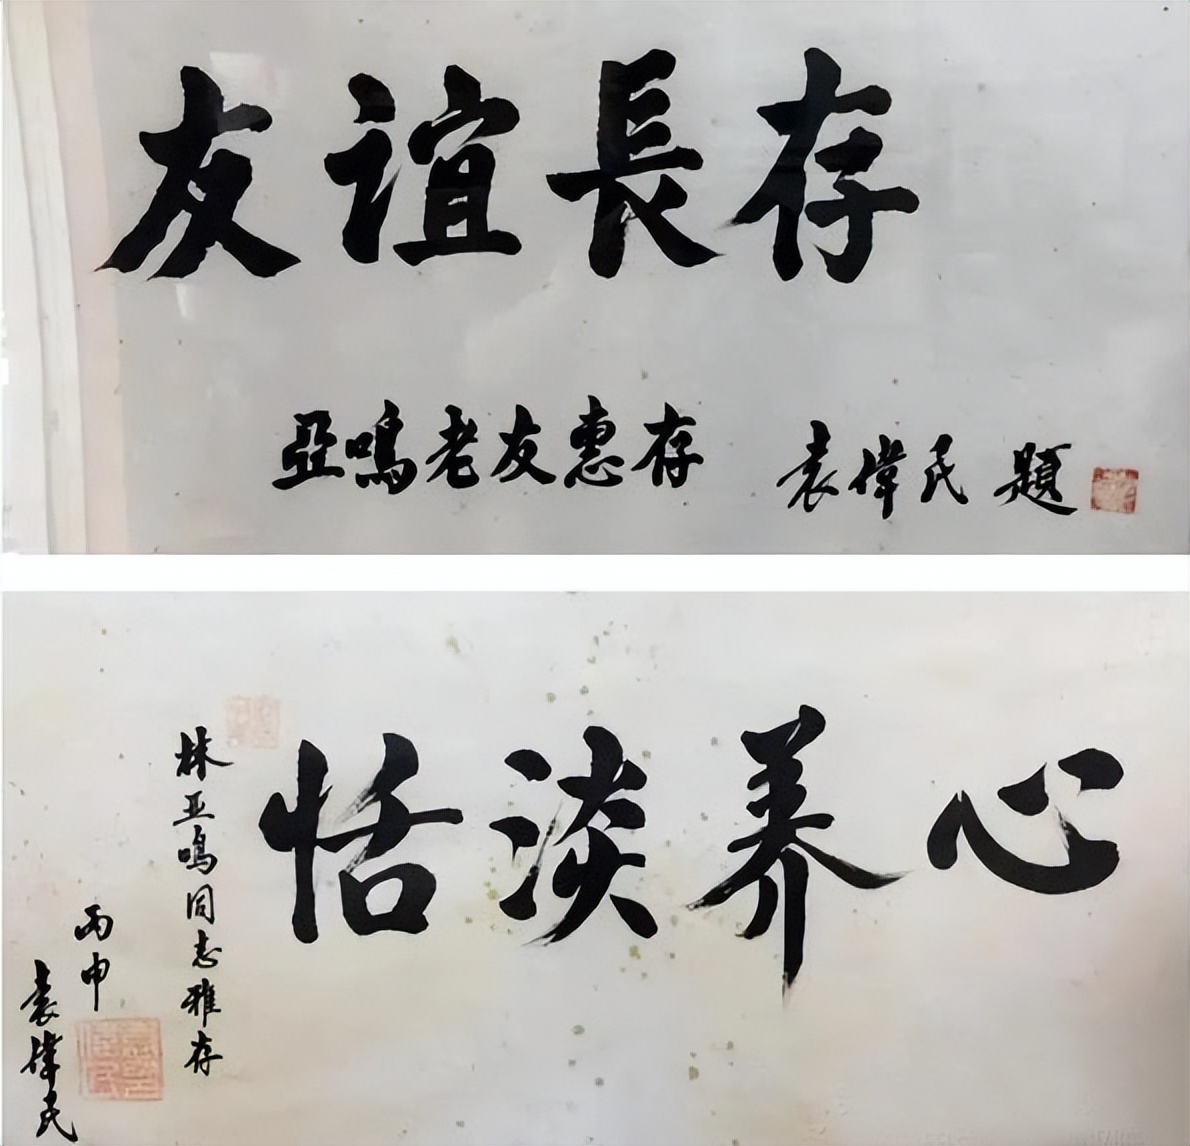 友誼長存
亞鳴老友惠存 袁偉民 題
恬淡养心
林亚鳴同志雅存
丙申
袁偉民